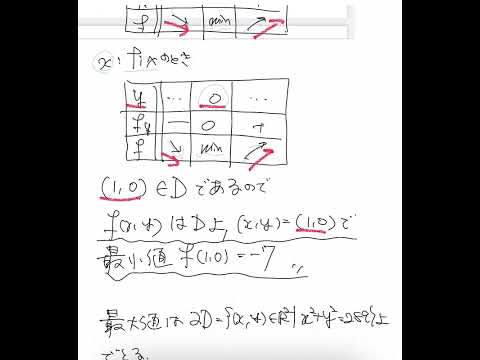 f ↘ min ↗
x : fixのとき
y … 0 …
fy − 0 +
f ↘ min ↗
(1,0) ∈ D であるので
f(x,y) は D上, (x,y)=(1,0) で
最小値 f(1,0) = -7 〃
最大値は ∂D={(x,y)∈ℝ²| x²+y²=289}上
でとる.